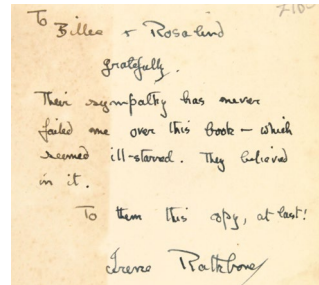 To Billee & Rosalind
gratefully.
Their sympathy has never
failed me over this book – which
seemed ill-starred. They believed
in it.
To them this copy, at last!
Irene Rathbone